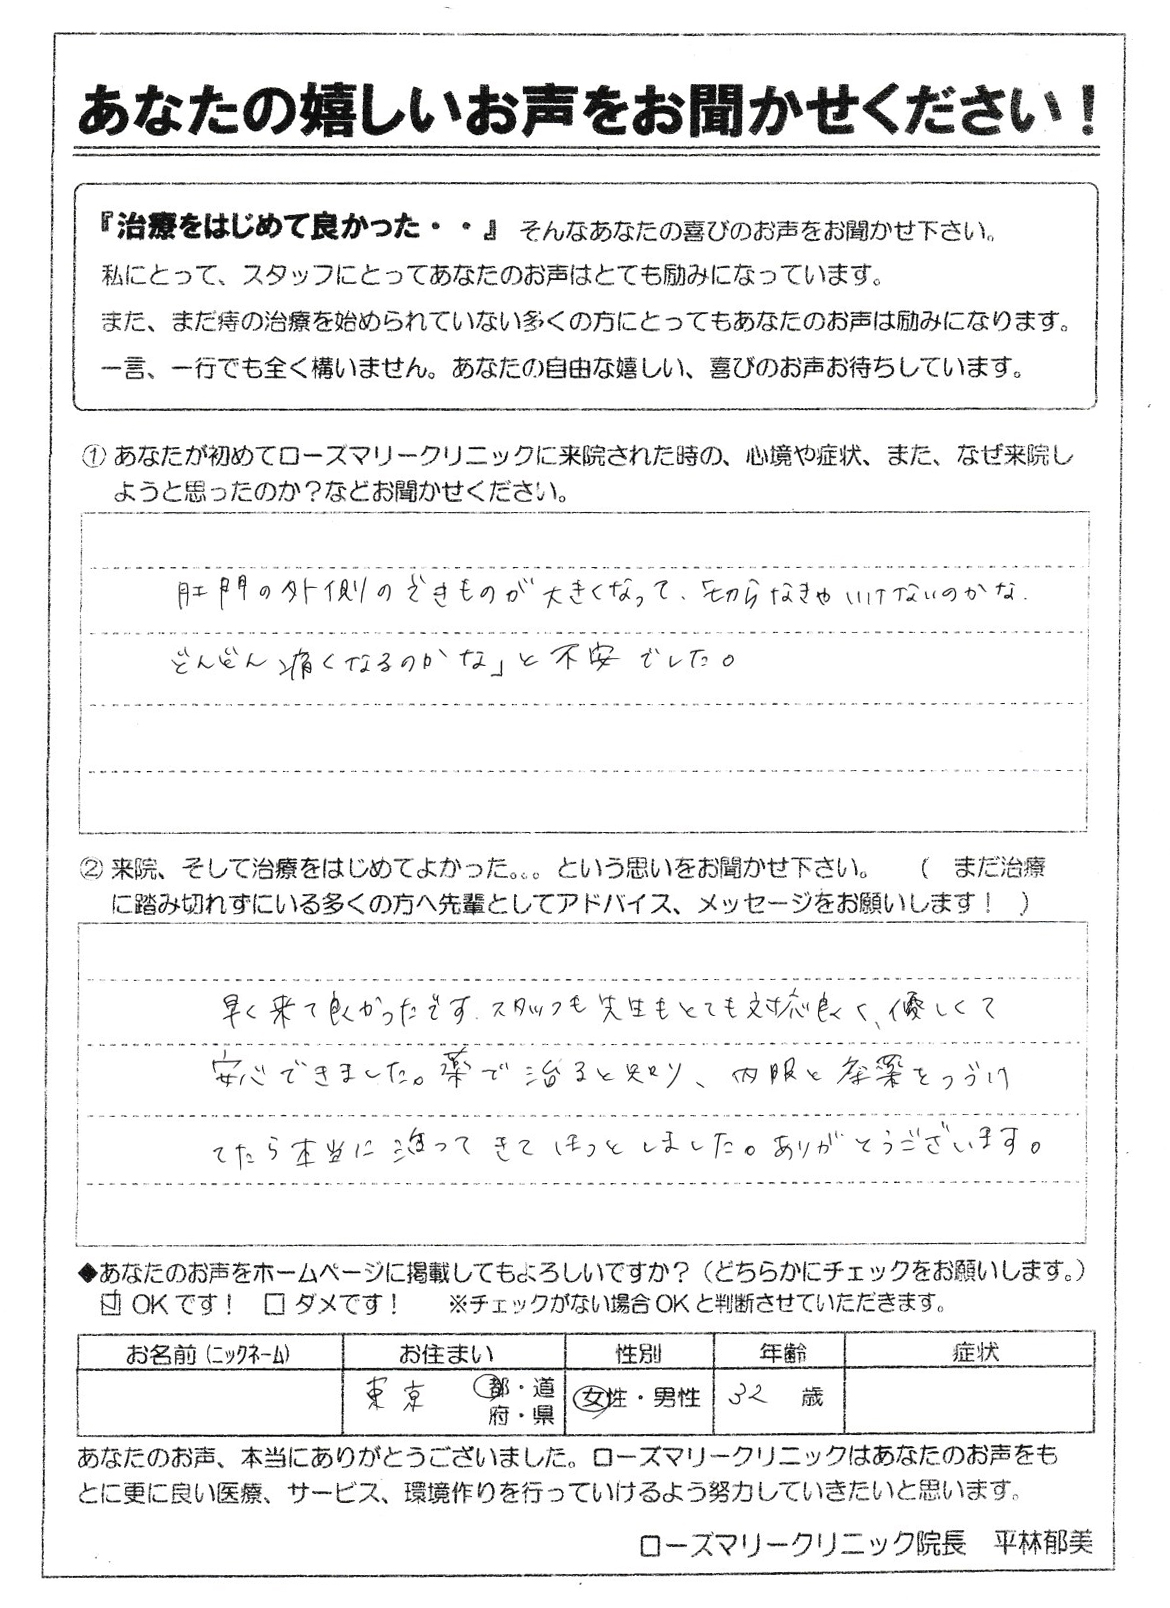 あなたの嬉しいお声をお聞かせください！
『治療をはじめて良かった・・』 そんなあなたの喜びのお声をお聞かせ下さい。
私にとって、スタッフにとってあなたのお声はとても励みになっています。
また、まだ痔の治療を始められていない多くの方にとってもあなたのお声は励みになります。
一言、一行でも全く構いません。あなたの自由な嬉しい、喜びのお声お待ちしています。
① あなたが初めてローズマリークリニックに来院された時の、心境や症状、また、なぜ来院し
ようと思ったのか？などお聞かせください。
肛門の外側のできものが大きくなって、「切らなきゃいけないのかな．
どんどん痛くなるのかな」と不安でした。
② 来院、そして治療をはじめてよかった。。。という思いをお聞かせ下さい。　（ まだ治療
に踏み切れずにいる多くの方へ先輩としてアドバイス、メッセージをお願いします！ ）
早く来て良かったです．スタッフも先生もとても対応良く、優しくて
安心できました。薬で治ると知り、内服と座薬をつづけ
てたら本当に治ってきてほっとしました。ありがとうございます。
◆あなたのお声をホームページに掲載してもよろしいですか？（どちらかにチェックをお願いします。）
☑ OKです！　□ ダメです！　※チェックがない場合OKと判断させていただきます。
お名前（ニックネーム） お住まい 性別 年齢 症状
東京 都・道 女性・男性 32 歳
府・県
あなたのお声、本当にありがとうございました。ローズマリークリニックはあなたのお声をも
とに更に良い医療、サービス、環境作りを行っていけるよう努力していきたいと思います。
ローズマリークリニック院長　平林郁美